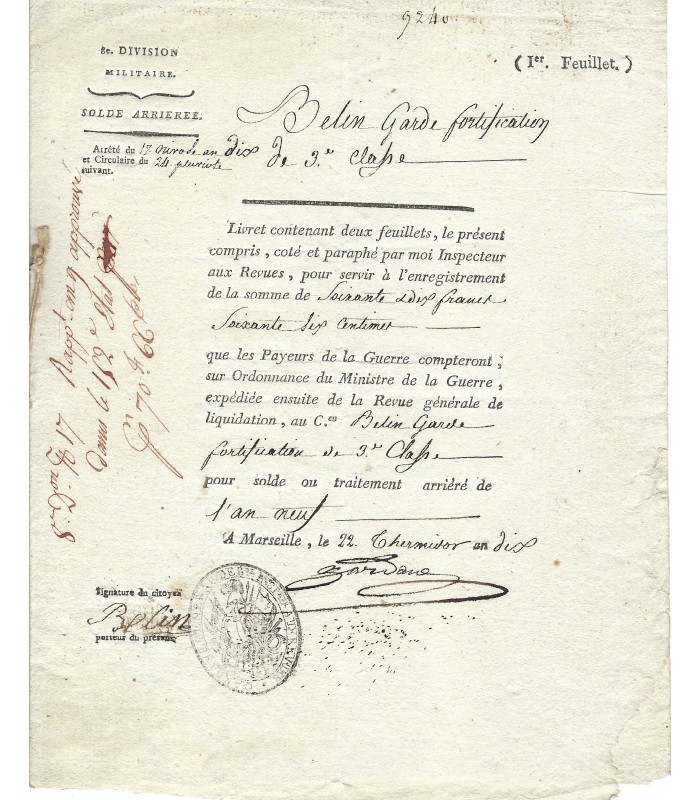 9240
8e. DIVISION
MILITAIRE.
SOLDE ARRIEREE.
Arrêté du 17 nivose an dix
et Circulaire du 24 pluviose
suivant.
( Ier. Feuillet. )
Belin Garde fortification
de 3.e Classe
Livret contenant deux feuillets, le présent
compris, coté et paraphé par moi Inspecteur
aux Revues, pour servir à l'enregistrement
de la somme de Soixante & dix francs
Soixante Six Centimes
que les Payeurs de la Guerre compteront,
sur Ordonnance du Ministre de la Guerre,
expédiée ensuite de la Revue générale de
liquidation, au C.en Belin Garde
fortification de 3.e Classe
pour solde ou traitement arriéré de
l'an neuf
A Marseille, le 22. Thermidor an dix
Signature du citoyen
Belin
porteur du présent
8.e Don N.o 17 Rapp.t en 9 approuvé
dans le 189e Etat
70 66